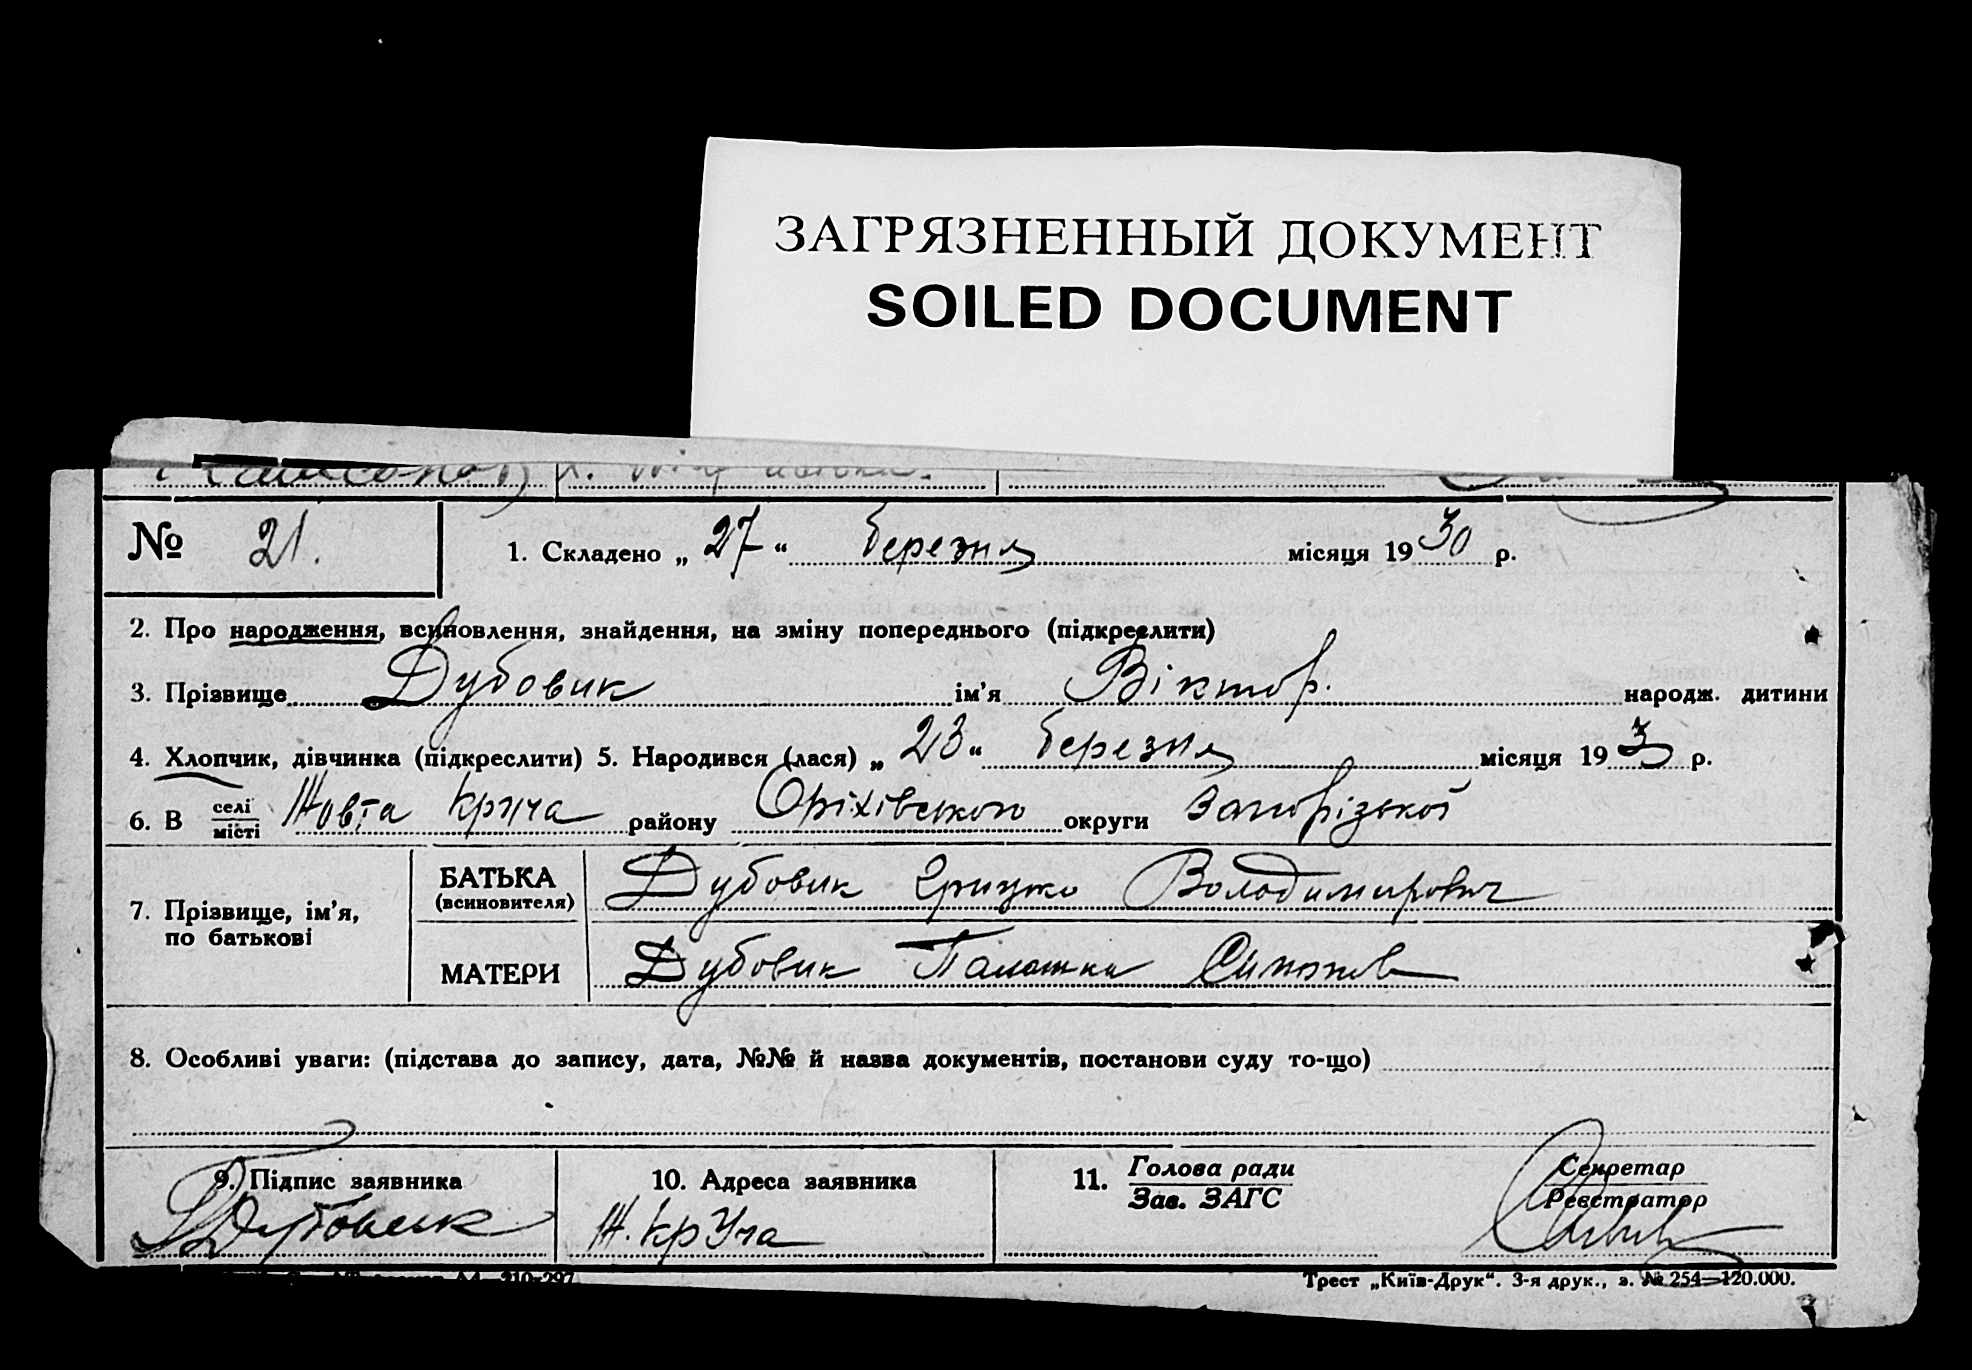 ЗАГРЯЗНЕННЫЙ ДОКУМЕНТ
SOILED DOCUMENT
№ 21. 1. Складено „ 27 “ березня місяця 1930 р.
2. Про народження, всиновлення, знайдення, на зміну попереднього (підкреслити)
3. Прізвище Дубовик ім'я Віктор. народж. дитини
4. Хлопчик, дівчинка (підкреслити) 5. Народився (лася) „ 23 “ березня місяця 193 р.
6. В селі місті Жовта Круча району Оріхівського округи Запорізької
7. Прізвище, ім'я, по батькові
БАТЬКА (всиновителя) Дубовик Грицько Володимирович
МАТЕРИ Дубовик Палашка
8. Особливі уваги: (підстава до запису, дата, №№ й назва документів, постанови суду то-що)
9. Підпис заявника 10. Адреса заявника 11. Голова ради Секретар
Зав. ЗАГС Реєстратор
Дубовик Ж. КрУча
Трест „Київ-Друк“. 3-я друк., з. № 254—120.000.